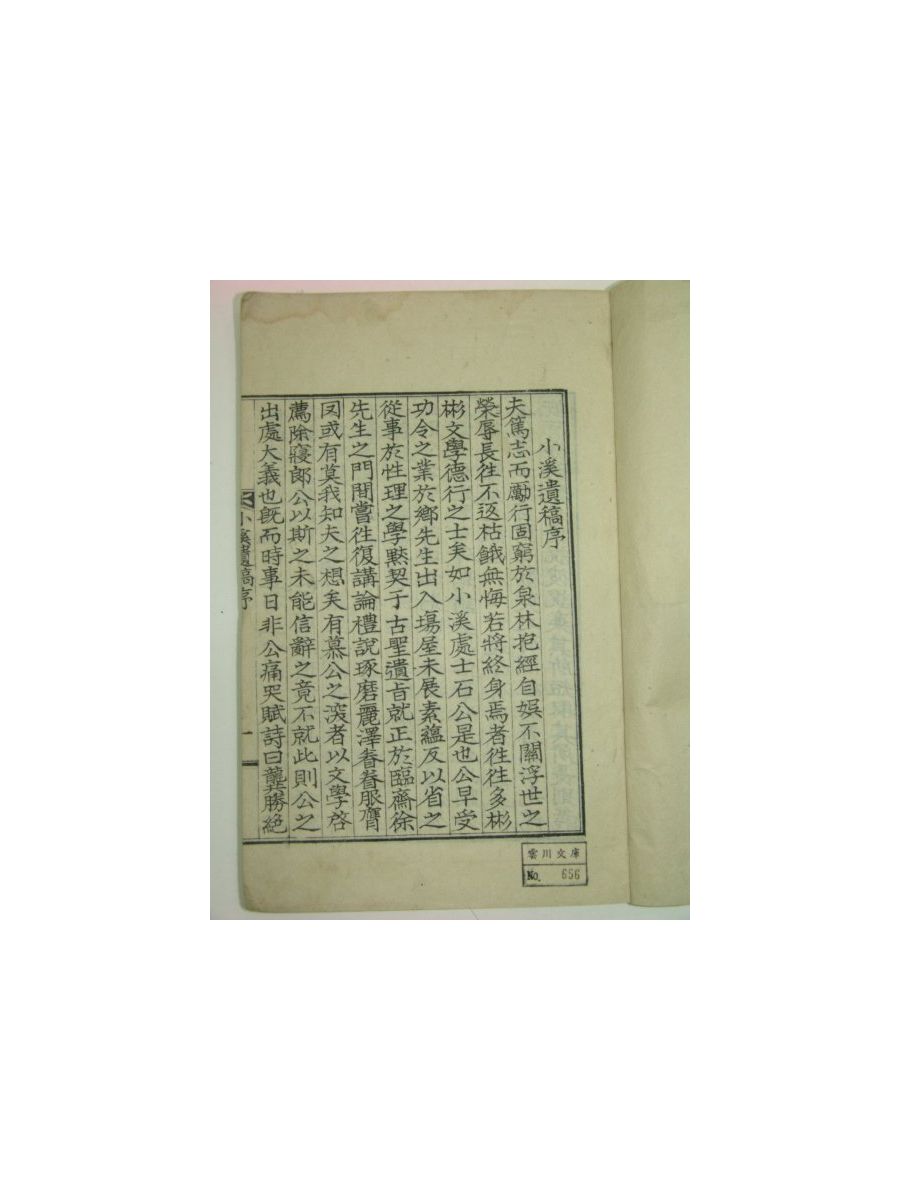 小溪遺稿序
夫篤志而勵行固窮於泉林抱經自娛不關浮世之
榮辱長徃不返枯餓無悔若將終身焉者徃徃多彬
彬文學德行之士矣如小溪處士石公是也公早受
功令之業於鄉先生出入塲屋未展素蘊反以省之
從事於性理之學黙契于古聖遺旨就正於臨齋徐
先生之門間嘗徃復講論禮說琢磨麗澤眷眷服膺
因或有莫我知夫之想矣有慕公之深者以文學啓
薦除寢郎公以斯之未能信辭之竟不就此則公之
出處大義也旣而時事日非公痛哭賦詩曰龔勝絶
小溪遺稿序
一
雲川文庫
No. 656